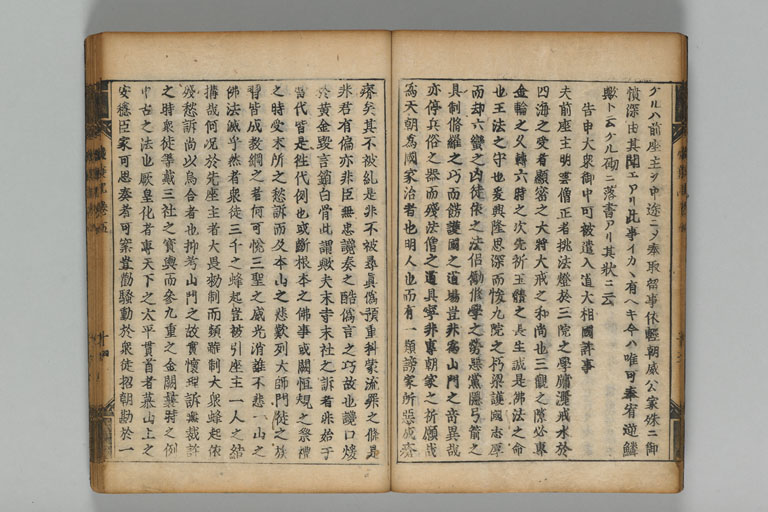 ケルハ前座主ヲ申途ニテ奉取留事休輕朝威公家殊ニ御
憤深由其聞エアリ此事イカヽ有ヘキ今ハ唯可奉宥逆鱗
歟ト云ケル砌ニ落書アリ其狀ニ云
告申大衆御中可被遣入道大相國許事
夫前座主明雲僧正者挑法燈於三院之學牖灑戒水於
四海之受者顯密之大將大戒之和尚也三觀之隙必專
金輪之久轉六時之次先祈玉體之長生誠是佛法之命
也王法之守也爰興隆思深而恢九院之朽梁護國志厚
而却六蠻之凶徒依之法侶勵修學之勞惡黨隱弓箭之
具制修羅之巧而餝護國之道場豈非爲山門之奇異哉
亦停兵俗之器而殘法僧之道具寧非專朝家之祈願哉
爲天朝爲國家治者也明人也而有一類謗家所惡成瘡
瘵矣其不被糺是非不被尋眞僞預重科蒙流罪之條是
非君有偏亦非臣無忠讒奏之酷僞言之巧故也讒口煖
於黄金毀言銷白骨此謂歟夫末寺末社之訴者非始于
當代皆是往代例也或斷根本之佛事或闕恒規之祭禮
之時受末所之愁訴而及本山之悲歎列大師門徒之族
皆成教綱之者何可恨三聖之威光消誰不悲一山之
佛法滅乎然者衆徒三千之蜂起豈被引座主一人之結
搆哉何况於先座主者大畏勅制而頻雖制大衆蜂起依
之時衆徒等戴三社之寶輿而參九重之金闕
殘愁訴尚以爲合者也抑考山門之故實懷理訴無裁許
中古之法也厥皇化者專天下之太平貫首者慕山上之
安穩臣家可思奏者可案豈勸騷動於衆徒招朝勘於一